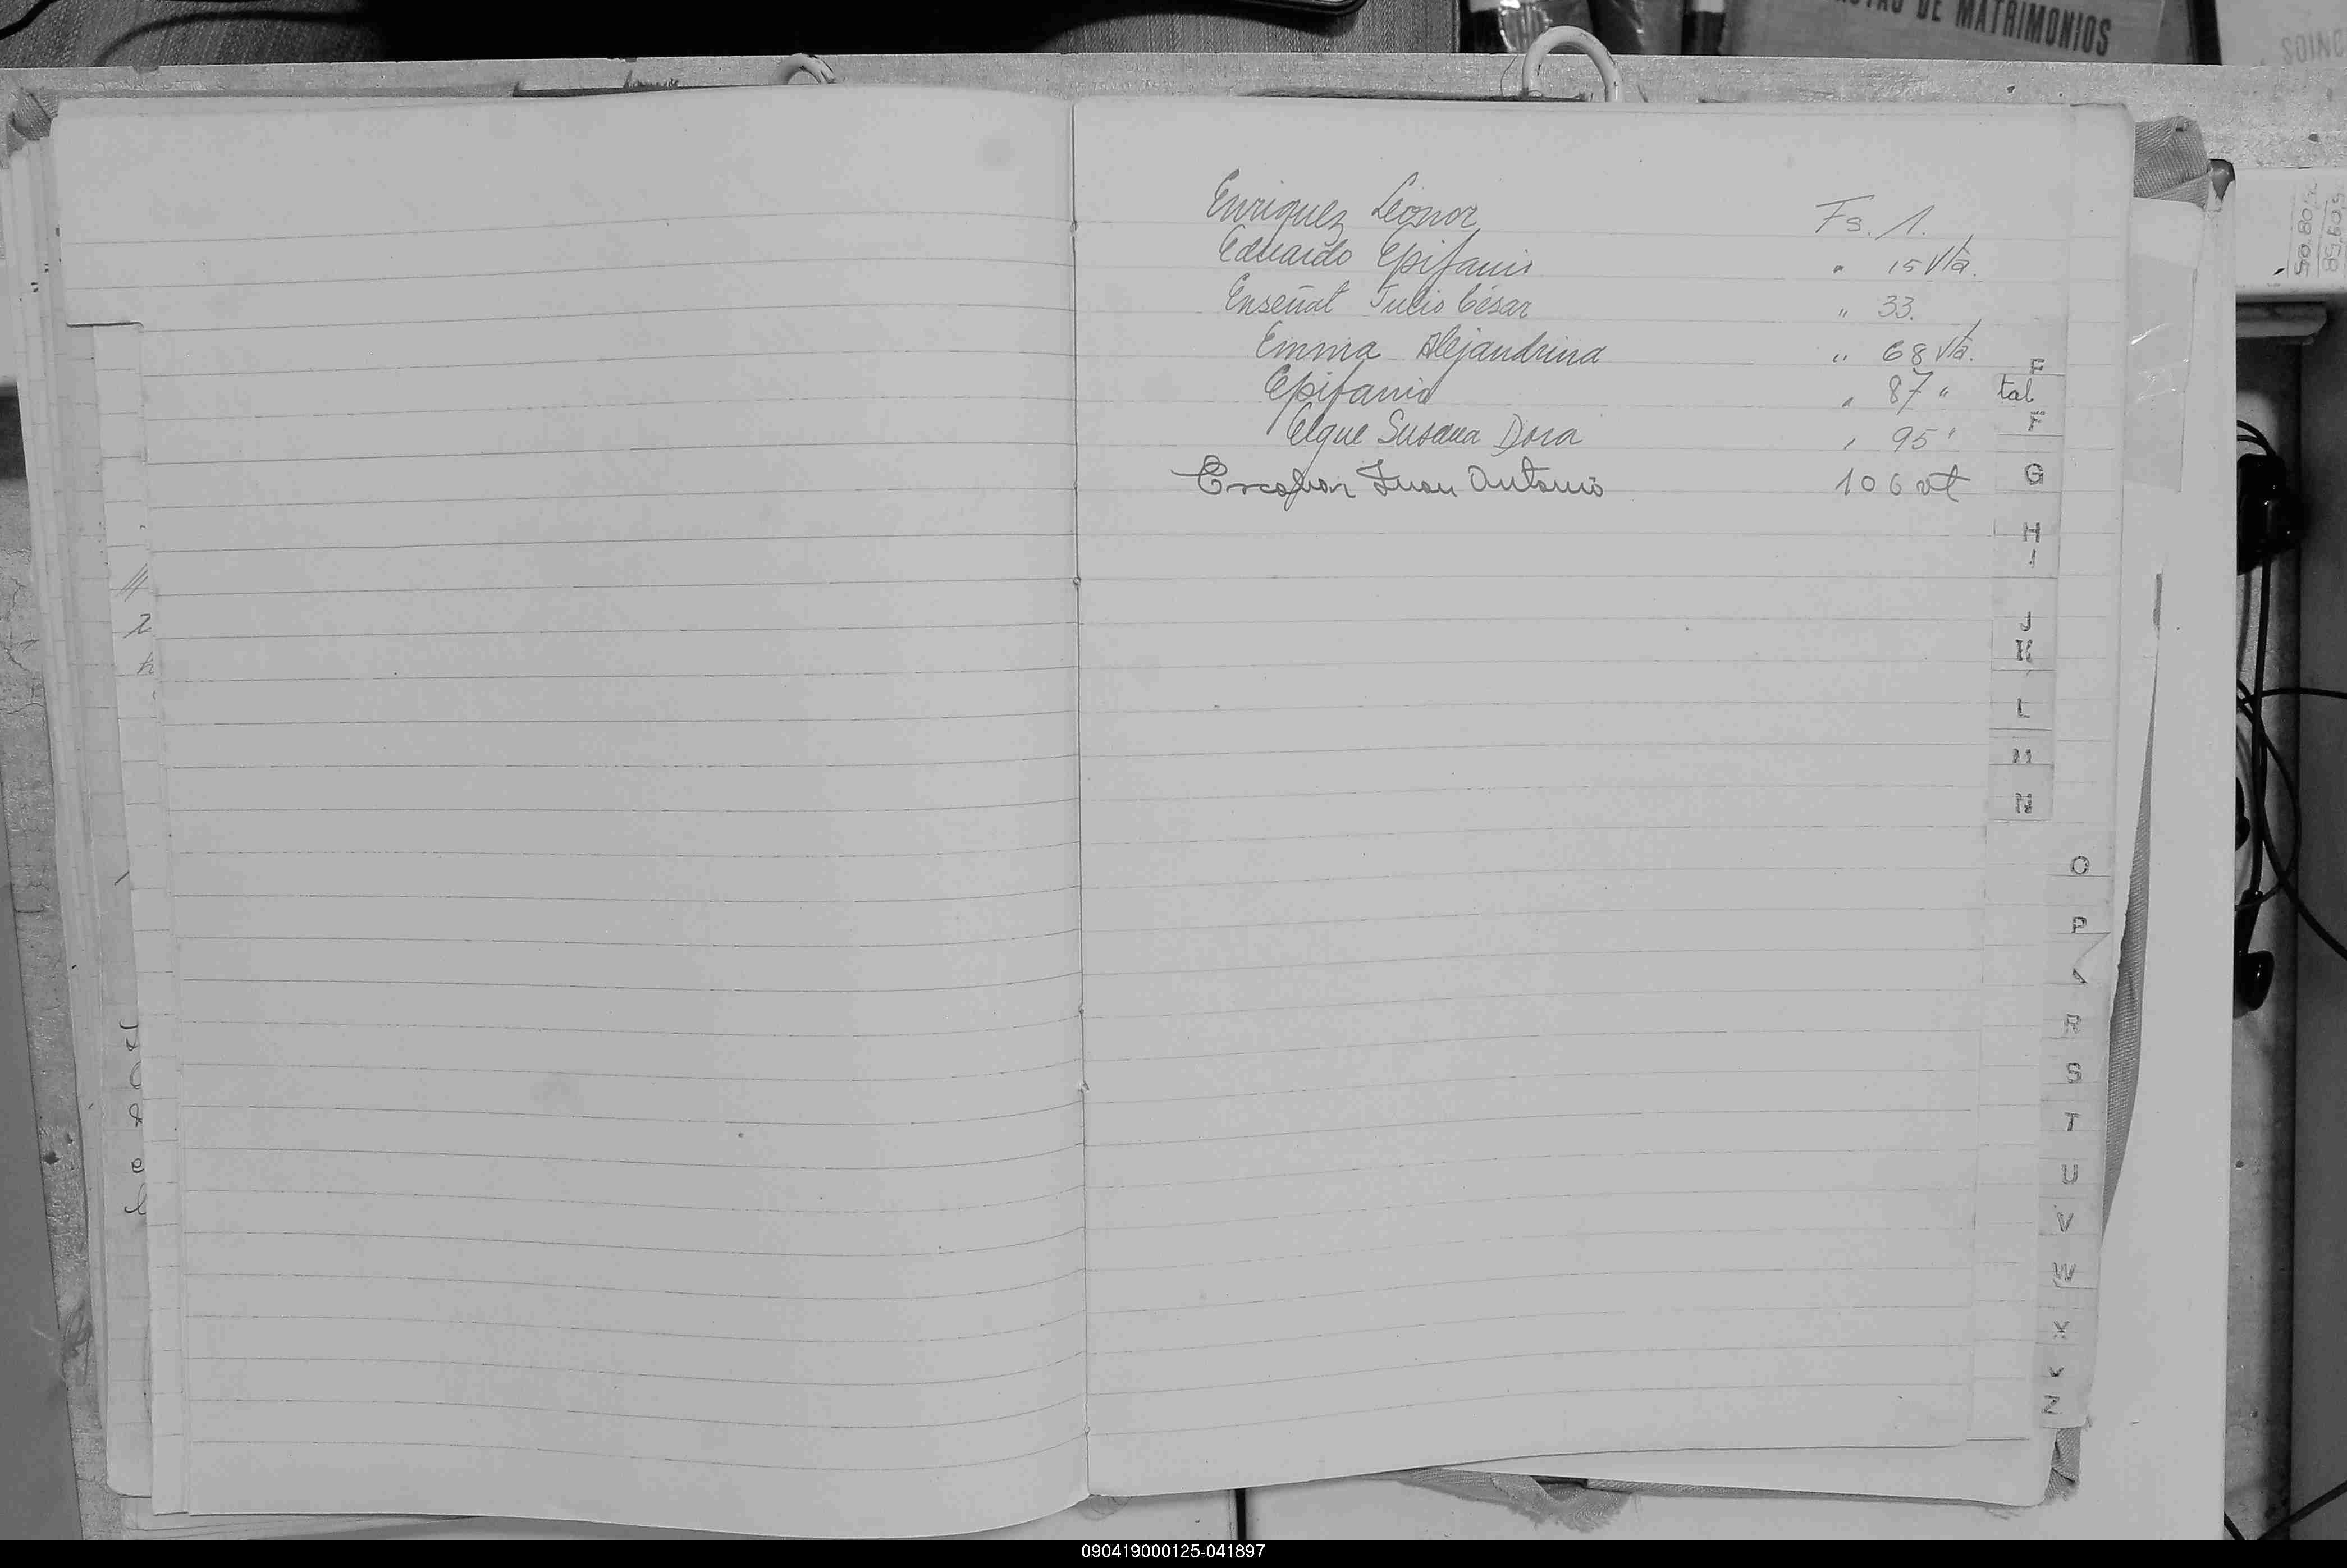 DE MATRIMONIOS
Enriquez Leonor Fs. 1.
Eduardo Epifanio " 15 Vta.
Enseñat Julio César " 33.
Emma Alejandrina " 68 Vta.
Epifanio " 87 "
Elque Susana Dora " 95 "
Escobar Juan Antonio 106 vt
tal
F
G
H
I
J
K
L
M
N
O
P
R
S
T
U
V
W
X
Z
090419000125-041897